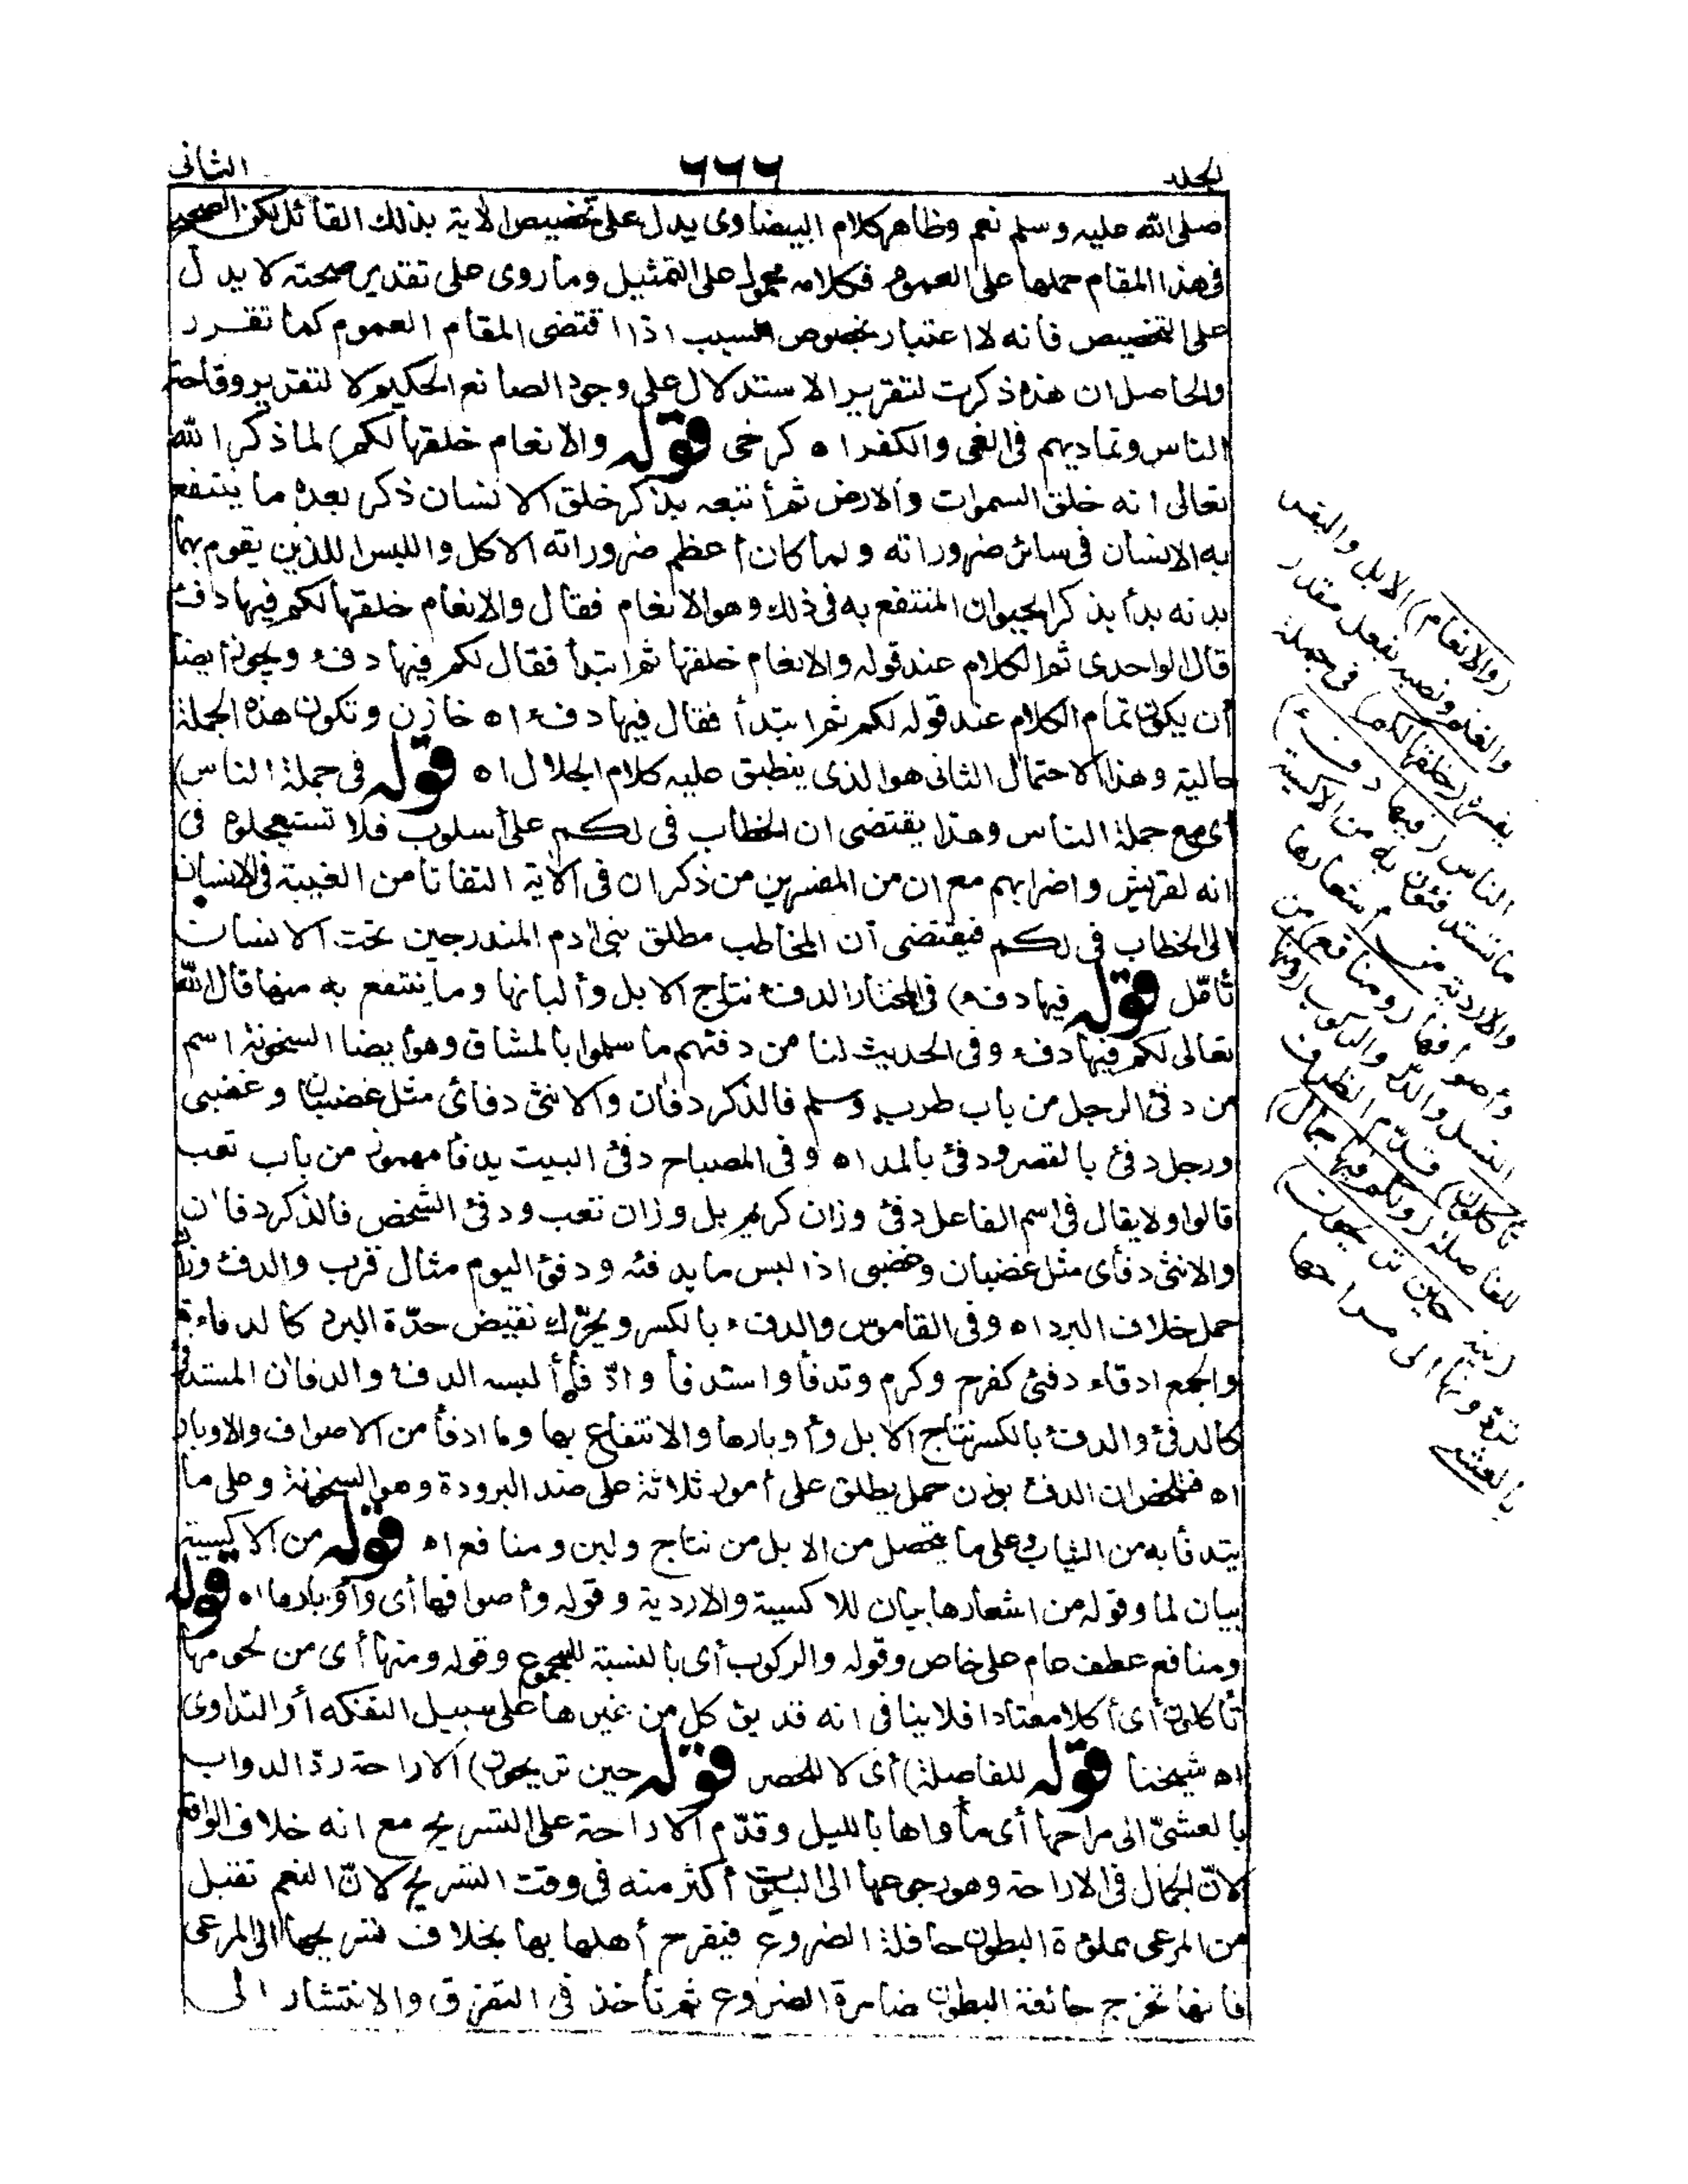 الجلد ٦٦٦ الثانى
صلى الله عليه وسلم نعم وظاهر كلام البيضاوى يدل على تخصيص الاية بذلك القائل لكن الصحيح
فى هذا المقام حملها على العموم فكلامه محمول على التمثيل وما روى على تقدير صحته لا يدل
على التخصيص فانه لا اعتبار بخصوص السبب اذا اقتضى المقام العموم كما تقرر
والحاصل ان هذه ذكرت لتقرير الاستدلال على وجود الصانع الحكيم لا لتقرير وقاحة
الناس وتماديهم فى الغى والكفر اه كرخى قوله والانعام خلقها لكم) لما ذكر الله
تعالى انه خلق السموات والارض ثم أتبعه بذكر خلق الانسان ذكر بعده ما ينتفع
به الانسان فى سائر ضروراته ولما كان أعظم ضروراته الاكل واللبس اللذين يقوم بهما
بدنه بدأ بذكر الحيوان المنتفع به فى ذلك وهو الانعام فقال والانعام خلقها لكم فيها دفء
قال الواحدى ثم الكلام عند قوله والانعام خلقها ثم ابتدأ فقال لكم فيها دفء ويجوز أيضا
أن يكون تمام الكلام عند قوله لكم ثم ابتدأ فقال فيها دفء اه خازن وتكون هذه الجملة
حالية وهذا الاحتمال الثانى هو الذى ينطبق عليه كلام الجلال اه قوله فى جملة الناس)
أى مع جملة الناس وهذا يقتضى ان الخطاب فى لكم على أسلوب فلا تستعجلوه فى
انه لقريش واضرابهم مع ان من المفسرين من ذكر ان فى الآية التفاتا من الغيبة فى الانسان
الى الخطاب فى لكم فيقتضى أن المخاطب مطلق بنى آدم المندرجين تحت الانسان
تأمّل قوله فيها دفء) فى المختار الدفء نتاج الابل وألبانها وما ينتفع به منها قال الله
تعالى لكم فيها دفء وفى الحديث لنا من دفئهم ما سلموا بالمشاق وهو أيضا السخونة اسم
من دفئ الرجل من باب طرب وسلم فالذكر دفآن والانثى دفأى مثل غضبان وغضبى
ورجل دفئ بالقصر ودفئ بالمد اه وفى المصباح دفئ البيت يدفأ مهموز من باب تعب
قالوا ولا يقال فى اسم الفاعل دفئ وزان كريم بل وزان تعب ودفئ الشخص فالذكر دفآن
والانثى دفأى مثل غضبان وغضبى اذا لبس ما يدفئه ودفؤ اليوم مثال قرب والدفء وزان
حمل خلاف البرد اه وفى القاموس والدفء بالكسر ويحرّك نقيض حدّة البرد كالدفاءة
والجمع ادفاء دفئ كفرح وكرم وتدفأ واستدفأ وادّفأ وأدفأه ألبسه الدفء والدفآن المستدفئ
كالدفئ والدفء بالكسر نتاج الابل وأوبارها والانتفاع بها وما ادفأ من الاصواف والاوبار
اه فتلخص ان الدفء بوزن حمل يطلق على أمور ثلاثة على ضد البرودة وهو السخونة وعلى ما
يتدفأ به من الثياب وعلى ما يتحصل من الابل من نتاج ولبن ومنافع اه قوله من الاكسية
بيان لما وقوله من اشعارها بيان للاكسية والاردية وقوله وأصوافها أى وأوبارها اه قوله
ومنافع عطف عام على خاص وقوله والركوب أى بالنسبة للمجموع وقوله ومنها أى من لحومها
تأكلون أى أكلا معتادا فلا ينافى انه قد يؤكل من غيرها على سبيل التفكه أو التداوى
اه شيخنا قوله للفاصلة) أى لا للحصر قوله حين تريحون) الاراحة ردّ الدواب
بالعشىّ الى مراحها أى مأواها بالليل وقدّم الاراحة على التسريح مع انه خلاف الواقع
لانّ الجمال فى الاراحة وهو رجوعها الى البيوت أكثر منه فى وقت التسريح لانّ النعم تقبل
من المرعى مملوءة البطون حافلة الضروع فيفرح أهلها بها بخلاف تسريحها الى المرعى
فانها تخرج جائعة البطون ضامرة الضروع ثم تأخذ فى التفرق والانتشار الى
(والانعام) الابل والبقر
والغنم ونصبه بفعل مقدر
يفسره (خلقها لكم) فى جملة
الناس (فيها دفء)
ما تستدفئون به من الاكسية
والاردية من اشعارها
وأصوافها (ومنافع) من
النسل والدرّ والركوب (ومنها
تأكلون) قدّم الظرف
للفاصلة (ولكم فيها جمال)
زينة (حين تريحون)
تردّونها الى مراحها
بالعشى